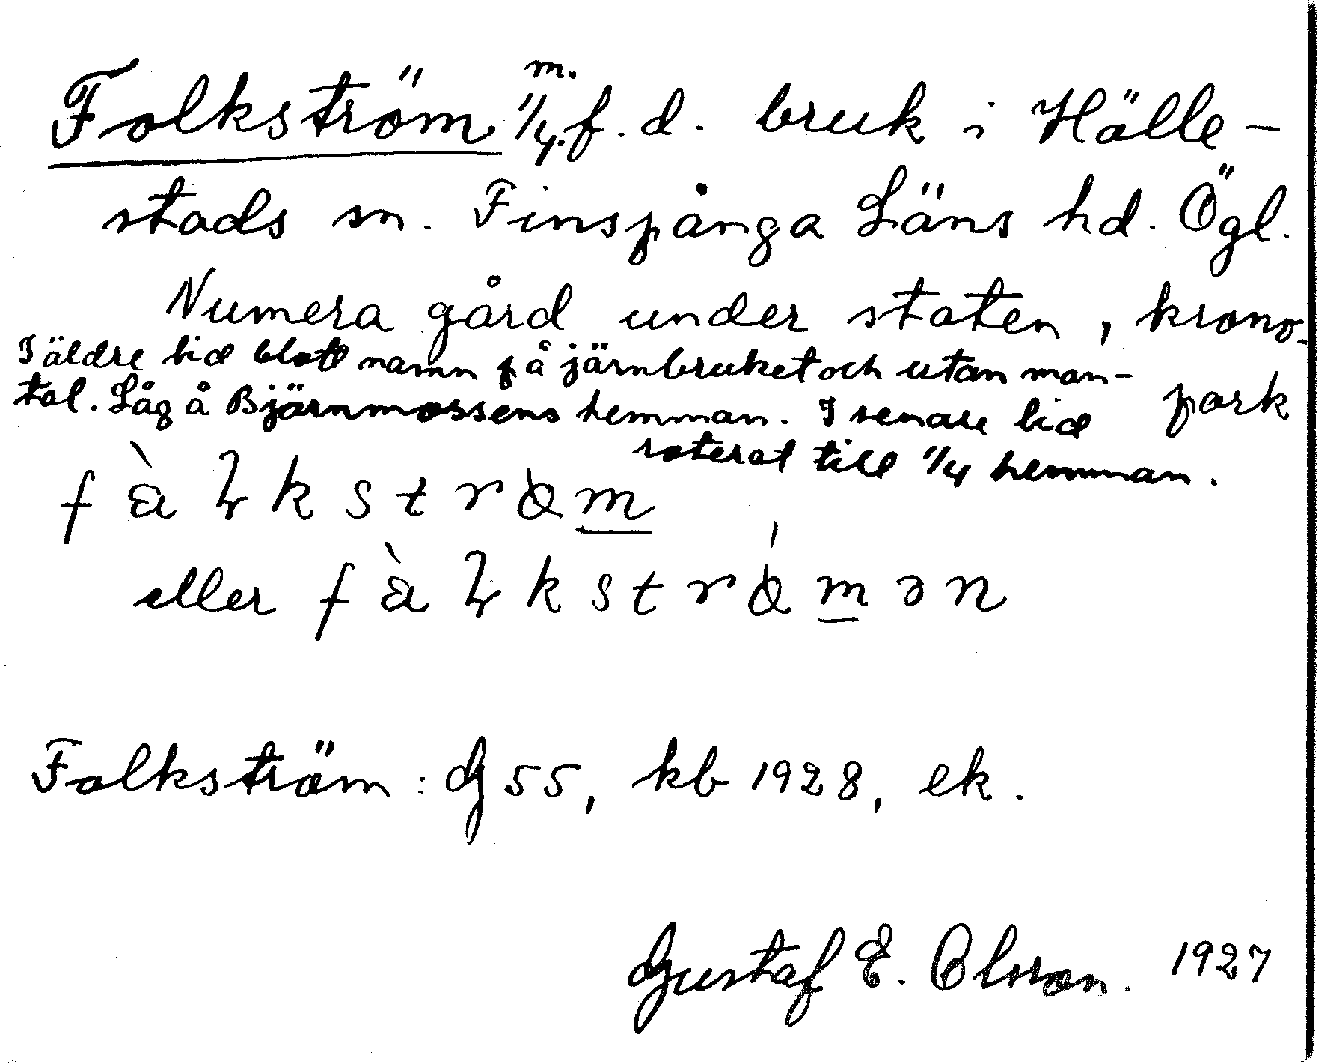 Folkström 1/4 m. f. d. bruk i Hälle-
stads sn. Finspånga Läns hd. Ögl.
Numera gård under staten, krono-
park
I äldre tid blott namn på järnbruket och utan man-
tal. Låg å Björnmossens hemman. I senare tid
roterat till 1/4 hemman.
fàɫkström
eller fàɫkströmən
Folkström: G 55, kb 1928, ek.
Gustaf E. Olsson. 1927